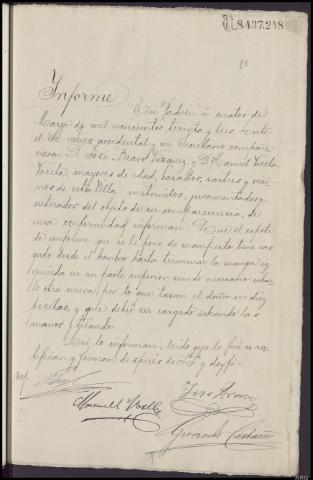 8.437.248
10
Informe En Padrón á cuatro de
Marzo de mil novecientos treinta y tres. Ante
el Sr. Juez accidental y mi Secretario compare
cieron D. José Bravo Vázquez y D. Manuel Varela
Varela, mayores de edad, casados, sastres y veci
nos de esta villa: instruidos, juramentados y
enterados del objeto de su comparecencia, de
una conformidad informan: Que el capote
de uniforme que se le pone de manifiesto tiene ras
gado desde el hombro hasta terminar la manga iz
quierda en su parte superior siendo necesario echar
le otra nueva, por lo que tasan el daño en diez
pesetas, y que debió ser rasgado echando las
manos y tirando.
Así lo informan, leido que les fué se ra
tifican y firman después de SSª y doy fé.
Manuel Varela
José Bravo
Gerardo